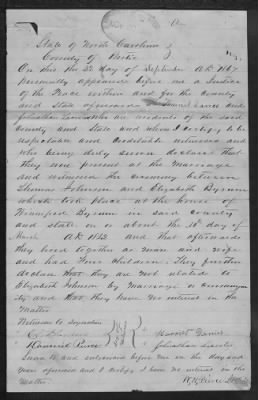 State of North Carolina }
County of Bertie }
On this the 20 day of September A.D. 1867
personally appeared before me a Justice
of the Peace within and for the County
and State aforesaid
Johnathan who are residents of the said
County and State and whom I certify to be
respectable and Creditable witnesses and
who being duly sworn declare that
they were present at the Marriage
and witnessed the ceremony between
Thomas Johnson and Elizabeth Byrum
which took place at the house of
Byrum in said county
and state on or about the 10th day of
March A.D. 1813 and that afterwards
they lived together as man and wife
and had Four Children. They further
declare that they are not related to
Elizabeth Johnson by Marriage or consanguin
ity and that they have no interest in the
Matter.
Witnesses to Signature
Pierce
Sworn to and subscribed before me on the day and
year aforesaid and I certify I have no interest in the
Matter.